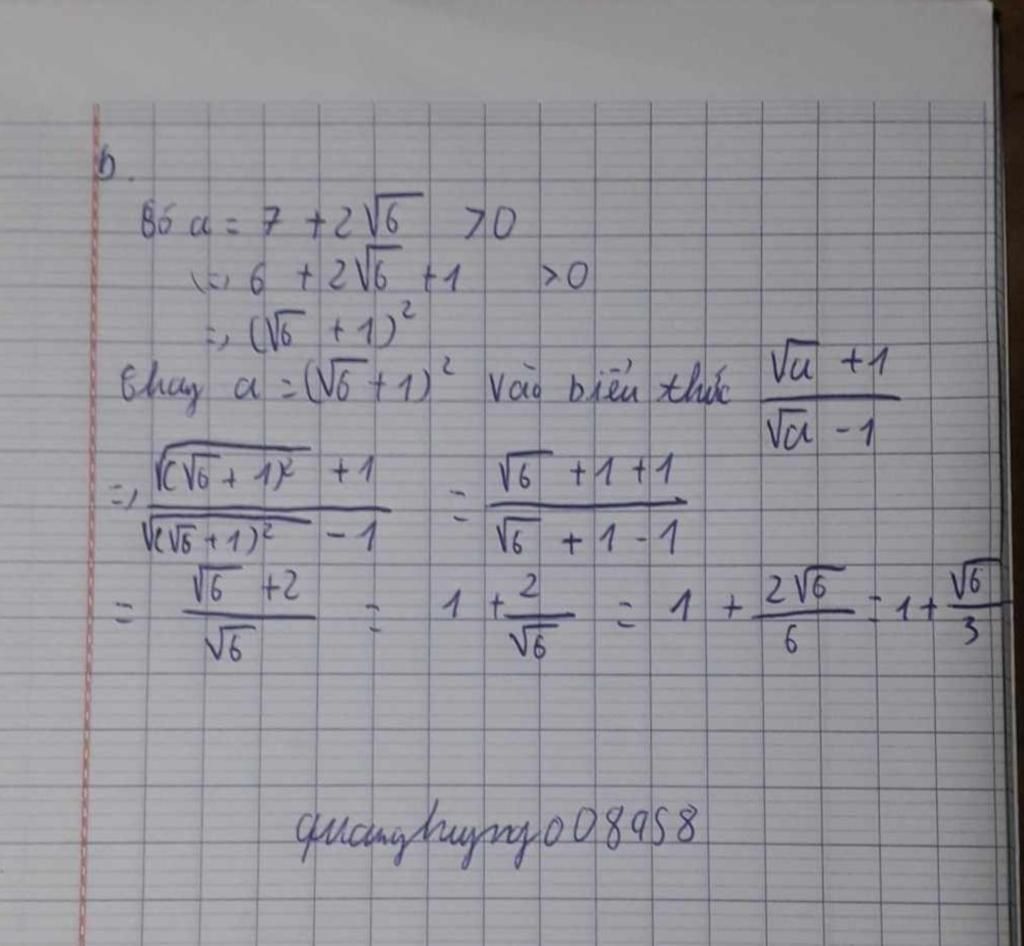 b.
Có a = 7 + 2√6 > 0
(=) 6 + 2√6 + 1 > 0
=) (√6 + 1)²
Thay a = (√6 + 1)² vào biểu thức (√a + 1)/(√a - 1)
=) (√((√6 + 1)²) + 1)/(√((√6 + 1)²) - 1) = (√6 + 1 + 1)/(√6 + 1 - 1)
= (√6 + 2)/√6 = 1 + 2/√6 = 1 + 2√6/6 = 1 + √6/3
quanghuyng008958